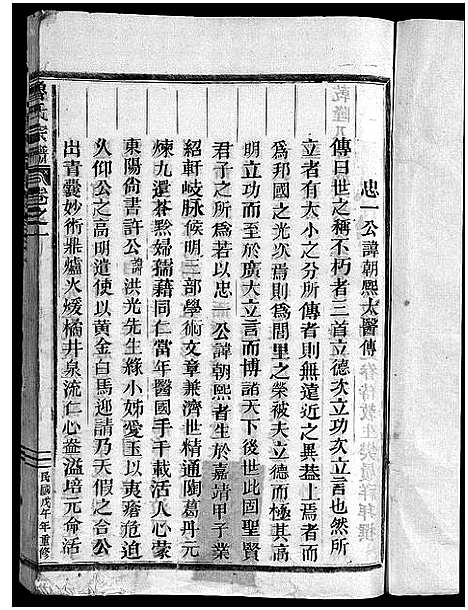 乾隆
忠一公諱朝熙太醫傳
傳曰世之稱不朽者三首立德次立功次立言也然所
立者有大小之分所傳者則無遠近之異葢上焉者而
為邦國之光次焉則為閭里之榮被夫立德而極其高
明立功而至於廣大立言而博諸天下後世此固聖賢
君子之所為若以忠一公諱朝熙者生於嘉靖甲子業
紹軒岐脉候明三部學術文章兼濟世精通陶葛丹元
煉九還蒼黔婦孺藉同仁當年醫國手千載活人心蒙
東陽尙書許公諱洪光先生緣小姊愛玉以夷瘡危迫
久仰公之高明遣使以黄金白馬迎請乃天假之合公
出青囊妙術鼎爐火煖橘井泉流仁心盎溢培元俞活
氏宗譜
卷之一
民國戊午年重修